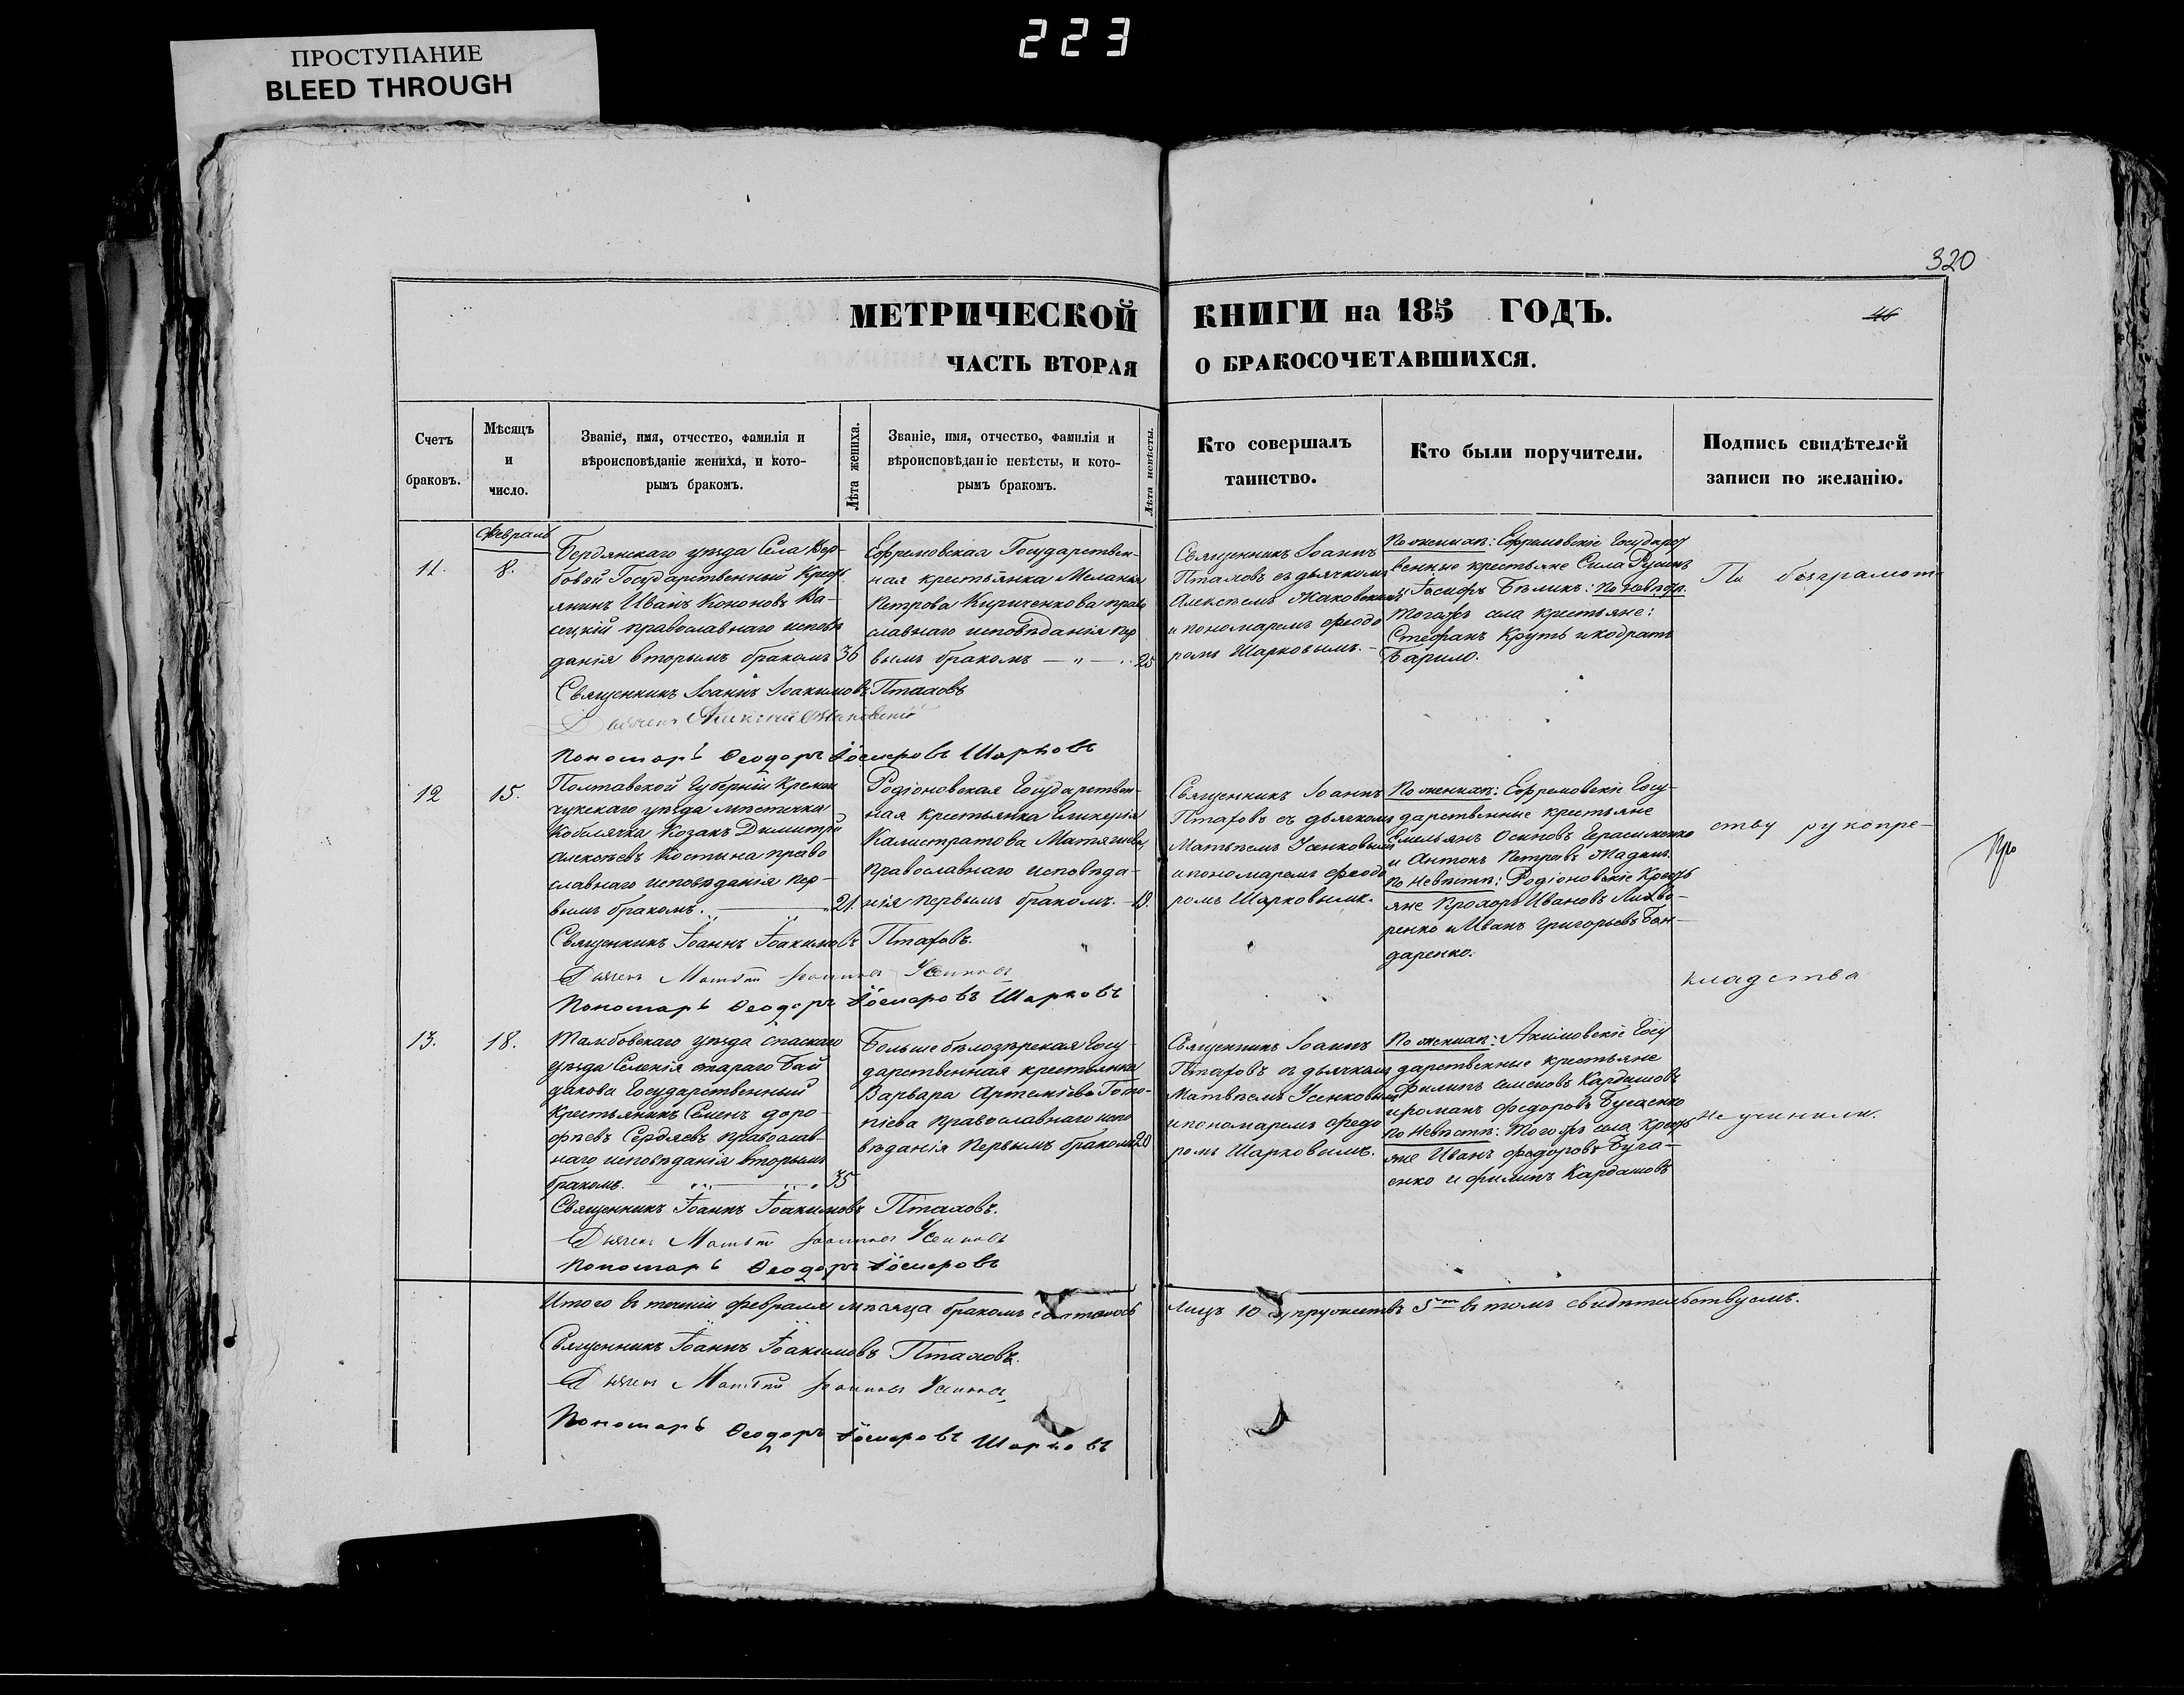 223
ПРОСТУПАНИЕ
BLEED THROUGH
320
МЕТРИЧЕСКОЙ КНИГИ на 185 ГОДЪ.
46
ЧАСТЬ ВТОРАЯ О БРАКОСОЧЕТАВШИХСЯ.
Счетъ браковъ.
Мѣсяцъ и число.
Званіе, имя, отчество, фамилія и
вѣроисповѣданіе жениха, и кото-
рымъ бракомъ.
Лѣта жениха.
Званіе, имя, отчество, фамилія и
вѣроисповѣданіе невѣсты, и кото-
рымъ бракомъ.
Лѣта невѣсты.
Кто совершалъ
таинство.
Кто были поручители.
Подпись свидѣтелей
записи по желанію.
Февраль
11.
8.
Бердянскаго уѣзда Села Вер-
бовой Государственный Крест
янинъ Иванъ Кононовъ
православнаго исповѣ
данія вторымъ бракомъ 36
Ефремовская Государствен-
ная крестьянка Меланія
Петрова Кириченкова право
славнаго исповѣданія пер
вымъ бракомъ — „ — 25
Священникъ Іоаннъ
Птаховъ съ дьячкомъ
Алексѣемъ Жаковскимъ
и пономаремъ Феодо
ромъ Шарковымъ.
По женихѣ: Ефремовскіе Государст
венные крестьяне Сила Русинъ
и Іосифъ Бѣликъ: по невѣстѣ.
тогожъ села крестьяне:
Стефанъ Крутъ и Кодратъ
Барило.
По безграмот
Священникъ Іоаннъ Іоакимовъ Птаховъ
Дьячекъ Алексій Жаковскій
Пономарь Ѳеодоръ Шарковъ
12
15.
Полтавской Губерніи Кремен
чукскаго уѣзда мѣстечка
Кобелячка Козакъ Димитрій
Алексѣевъ Костина право
славнаго исповѣданія пер-
вымъ бракомъ. 21.
Родіоновская Государствен-
ная крестьянка Гликерія
Калистратова
православнаго исповѣда-
нія первымъ бракомъ. 19.
Священникъ Іоаннъ
Птаховъ съ дьячкомъ
Матвѣемъ Усенковымъ
и пономаремъ Феодо
ромъ Шарковымъ.
По женихѣ: Ефремовскіе Госу-
дарственные крестьяне
Емельянъ Осиповъ Герасименко
и Антонъ Петровъ Жаданъ.
По Невѣстѣ: Родіоновскіе Крестъ
яне Прохоръ Ивановъ Лихво-
ренко и Иванъ Григорьевъ Бон-
даренко.
ству рукопре-
Священникъ Іоаннъ Іоакимовъ Птаховъ.
Дьячекъ Матѳій Іоанновъ Усенковъ
Пономарь Ѳеодоръ Шарковъ
кладства
13.
18.
Тамбовскаго уѣзда Спаскаго
уѣзда Селенія стараго Бай
дакова Государственный
Крестьянинъ Семенъ Доро-
фѣевъ Сердяевъ православ-
наго исповѣданія вторымъ
бракомъ. 35
Больше бѣлозѣрская Госу-
дарственная крестьянка
Варвара Артеміева
православнаго испо
вѣданія первымъ бракомъ 20
Священникъ Іоаннъ
Птаховъ съ дьячкомъ
Матвѣемъ Усенковымъ
и пономаремъ Феодо
ромъ Шарковымъ.
По женихѣ: Акимовскіе Госу
дарственные крестьяне
Филипъ Семеновъ Кардашовъ
и Романъ Федоровъ Бугаенко
По Невѣстѣ: Того жъ села Крестъ
яне Иванъ Федоровъ Буга-
енко и Филипъ Кардашовъ
не учинили.
Священникъ Іоаннъ Іоакимовъ Птаховъ.
Дьячекъ Матѳій Іоанновъ Усенковъ
Пономарь Ѳеодоръ
Итого въ теченіи февраля мѣсяца бракомъ сочеталось лицъ 10 супружествъ 5ть въ томъ свидѣтельствуемъ.
Священникъ Іоаннъ Іоакимовъ Птаховъ.
Дьячекъ Матѳій Іоанновъ Усенковъ
Пономарь Ѳеодоръ Шарковъ